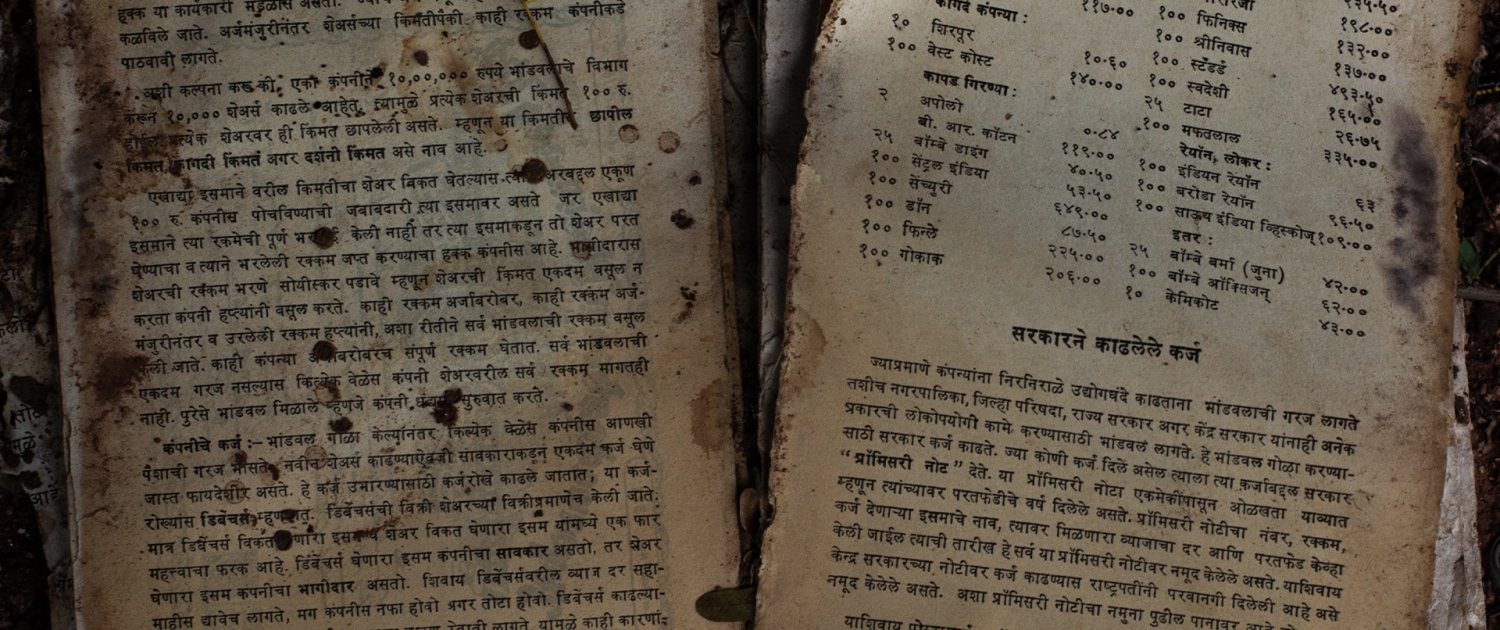 हक्क या कार्यकारी मंडळास असतो.
कळविले जाते. अर्जमंजुरीनंतर शेअर्सच्या किंमतीपैकी काही रक्कम कंपनीकडे
पाठवावी लागते.
अशी कल्पना करू की, एका कंपनीने १०,००,००० रुपये भांडवलाचे विभाग
करून १०,००० शेअर्स काढले आहेत. त्यामुळे प्रत्येक शेअरची किंमत १०० रु.
होईल. प्रत्येक शेअरवर ही किंमत छापलेली असते. म्हणून या किंमतीस छापील
किंमत, कागदी किंमत अगर दर्शनी किंमत असे नाव आहे.
एखाद्या इसमाने वरील किंमतीचा शेअर विकत घेतल्यास एकूण
१०० रु. कंपनीस पोचविण्याची जबाबदारी त्या इसमावर असते जर एखाद्या
इसमाने त्या रकमेची पूर्ण केली नाही तर त्या इसमाकडून तो शेअर परत
घेण्याचा व त्याने भरलेली रक्कम जप्त करण्याचा हक्क कंपनीस आहे. भागीदारास
शेअरची रक्कम भरणे सोयीस्कर पडावे म्हणून शेअरची किंमत एकदम वसूल न
करता कंपनी हप्त्यांनी वसूल करते. काही रक्कम अर्जाबरोबर, काही रक्कम अर्ज-
मंजुरीनंतर व उरलेली रक्कम हप्त्यांनी, अशा रीतीने सर्व भांडवलाची रक्कम वसूल
केली जाते. काही कंपन्या अर्जाबरोबरच संपूर्ण रक्कम घेतात. सर्व भांडवलाची
एकदम गरज नसल्यास कित्येक वेळेस कंपनी शेअरवरील सर्व रक्कम मागतही
नाही. पुरेसे भांडवल मिळाले म्हणजे कंपनी धंद्यास सुरुवात करते.
कंपनीचे कर्ज :– भांडवल गोळा केल्यानंतर कित्येक वेळेस कंपनीस आणखी
पैशाची गरज भासते. नवीन शेअर्स काढण्याऐवजी सावकाराकडून एकदम कर्ज घेणे
जास्त फायदेशीर असते. हे कर्ज उभारण्यासाठी कर्जरोखे काढले जातात; या कर्ज-
रोख्यास डिबेंचर्स म्हणतात. डिबेंचर्सची विक्री शेअरच्या विक्रीप्रमाणेच केली जाते.
मात्र डिबेंचर्स विकत घेणारा इसम व शेअर विकत घेणारा इसम यांमध्ये एक फार
महत्त्वाचा फरक आहे. डिबेंचर्स घेणारा इसम कंपनीचा सावकार असतो, तर शेअर
घेणारा इसम कंपनीचा भागीदार असतो. शिवाय डिबेंचर्सवरील व्याज दर सहा-
माहीस द्यावेच लागते, मग कंपनीस नफा होवो अगर तोटा होवो. डिबेंचर्स काढल्या-
ठेवावी लागते. यामुळे काही कारणां-
कागद कंपन्या : ११७·०० १०० फिनिक्स १९८·००
१० शिरपूर १०·६० १०० श्रीनिवास १३२·००
१०० वेस्ट कोस्ट १४०·०० १०० स्टँडर्ड १३७·००
कापड गिरण्या : १०० स्वदेशी ४९३·५०
२ अपोलो ०·८४ २५ टाटा १६५·००
बी. आर. कॉटन ११९·०० १०० मफतलाल २६·७५
२५ बॉम्बे डाइंग ४०·५० रेयॉन, लोकर : ३३५·००
१०० सेंट्रल इंडिया ५३·५० १०० इंडियन रेयॉन
१०० सेंच्युरी ६४९·०० १०० बरोडा रेयॉन ६३
१०० डॉन ८७·५० १०० साऊथ इंडिया व्हिस्कोज् ९६·५०
१०० फिन्ले २२५·०० इतर : १०९·००
१०० गोकाक २०६·०० २५ बॉम्बे बर्मा (जुना) ४२·००
१०० बॉम्बे ऑक्सिजन् ६२·००
१० केमिकोट ४३·००
सरकारने काढलेले कर्ज
ज्याप्रमाणे कंपन्यांना निरनिराळे उद्योगधंदे काढताना भांडवलाची गरज लागते
तशीच नगरपालिका, जिल्हा परिषदा, राज्य सरकार अगर केंद्र सरकार यांनाही अनेक
प्रकारची लोकोपयोगी कामे करण्यासाठी भांडवल लागते. हे भांडवल गोळा करण्या-
साठी सरकार कर्ज काढते. ज्या कोणी कर्ज दिले असेल त्याला त्या कर्जाबद्दल सरकार
“ प्रॉमिसरी नोट ” देते. या प्रॉमिसरी नोटा एकमेकांपासून ओळखता याव्यात
म्हणून त्यांच्यावर परतफेडीचे वर्ष दिलेले असते. प्रॉमिसरी नोटीचा नंबर, रक्कम,
कर्ज देणाऱ्या इसमाचे नाव, त्यावर मिळणारा व्याजाचा दर आणि परतफेड केव्हा
केली जाईल त्याची तारीख हे सर्व या प्रॉमिसरी नोटीवर नमूद केलेले असते. याशिवाय
केन्द्र सरकारच्या नोटीवर कर्ज काढण्यास राष्ट्रपतींनी परवानगी दिलेली आहे असे
नमूद केलेले असते. अशा प्रॉमिसरी नोटीचा नमुना पुढील पानावर आहे
याशिवाय